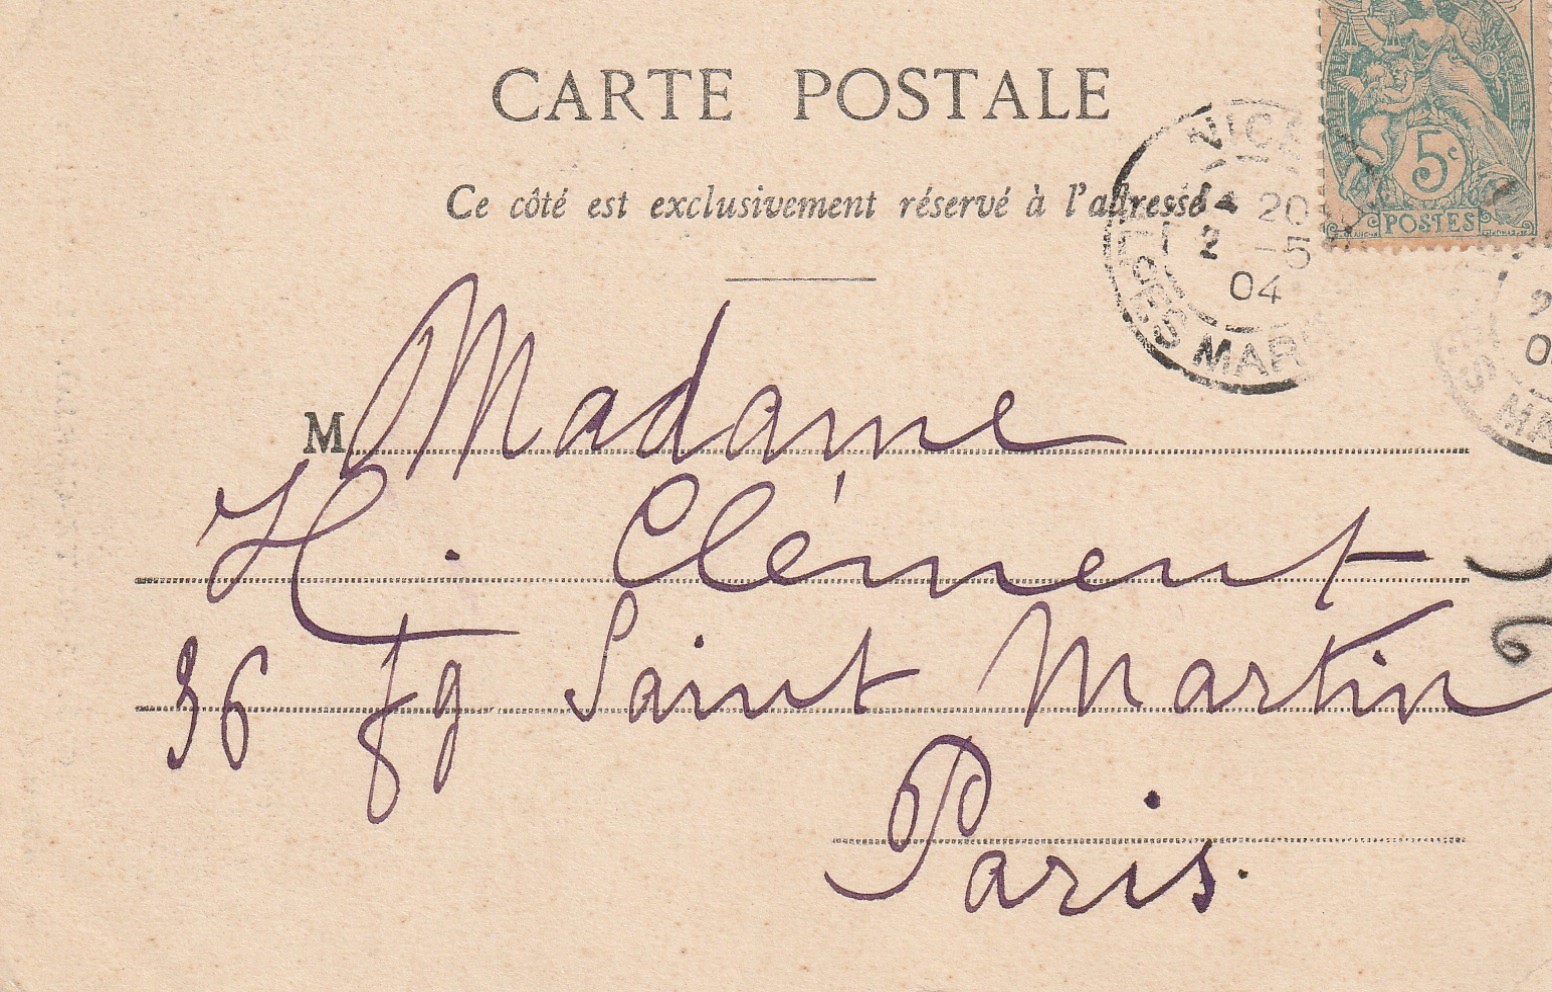 CARTE POSTALE
5c
POSTES
Ce côté est exclusivement réservé à l'adresse
NICE
20
2 -5
04
ALPES MAR
M Madame
H. Clément
36 fg Saint Martin
Paris.